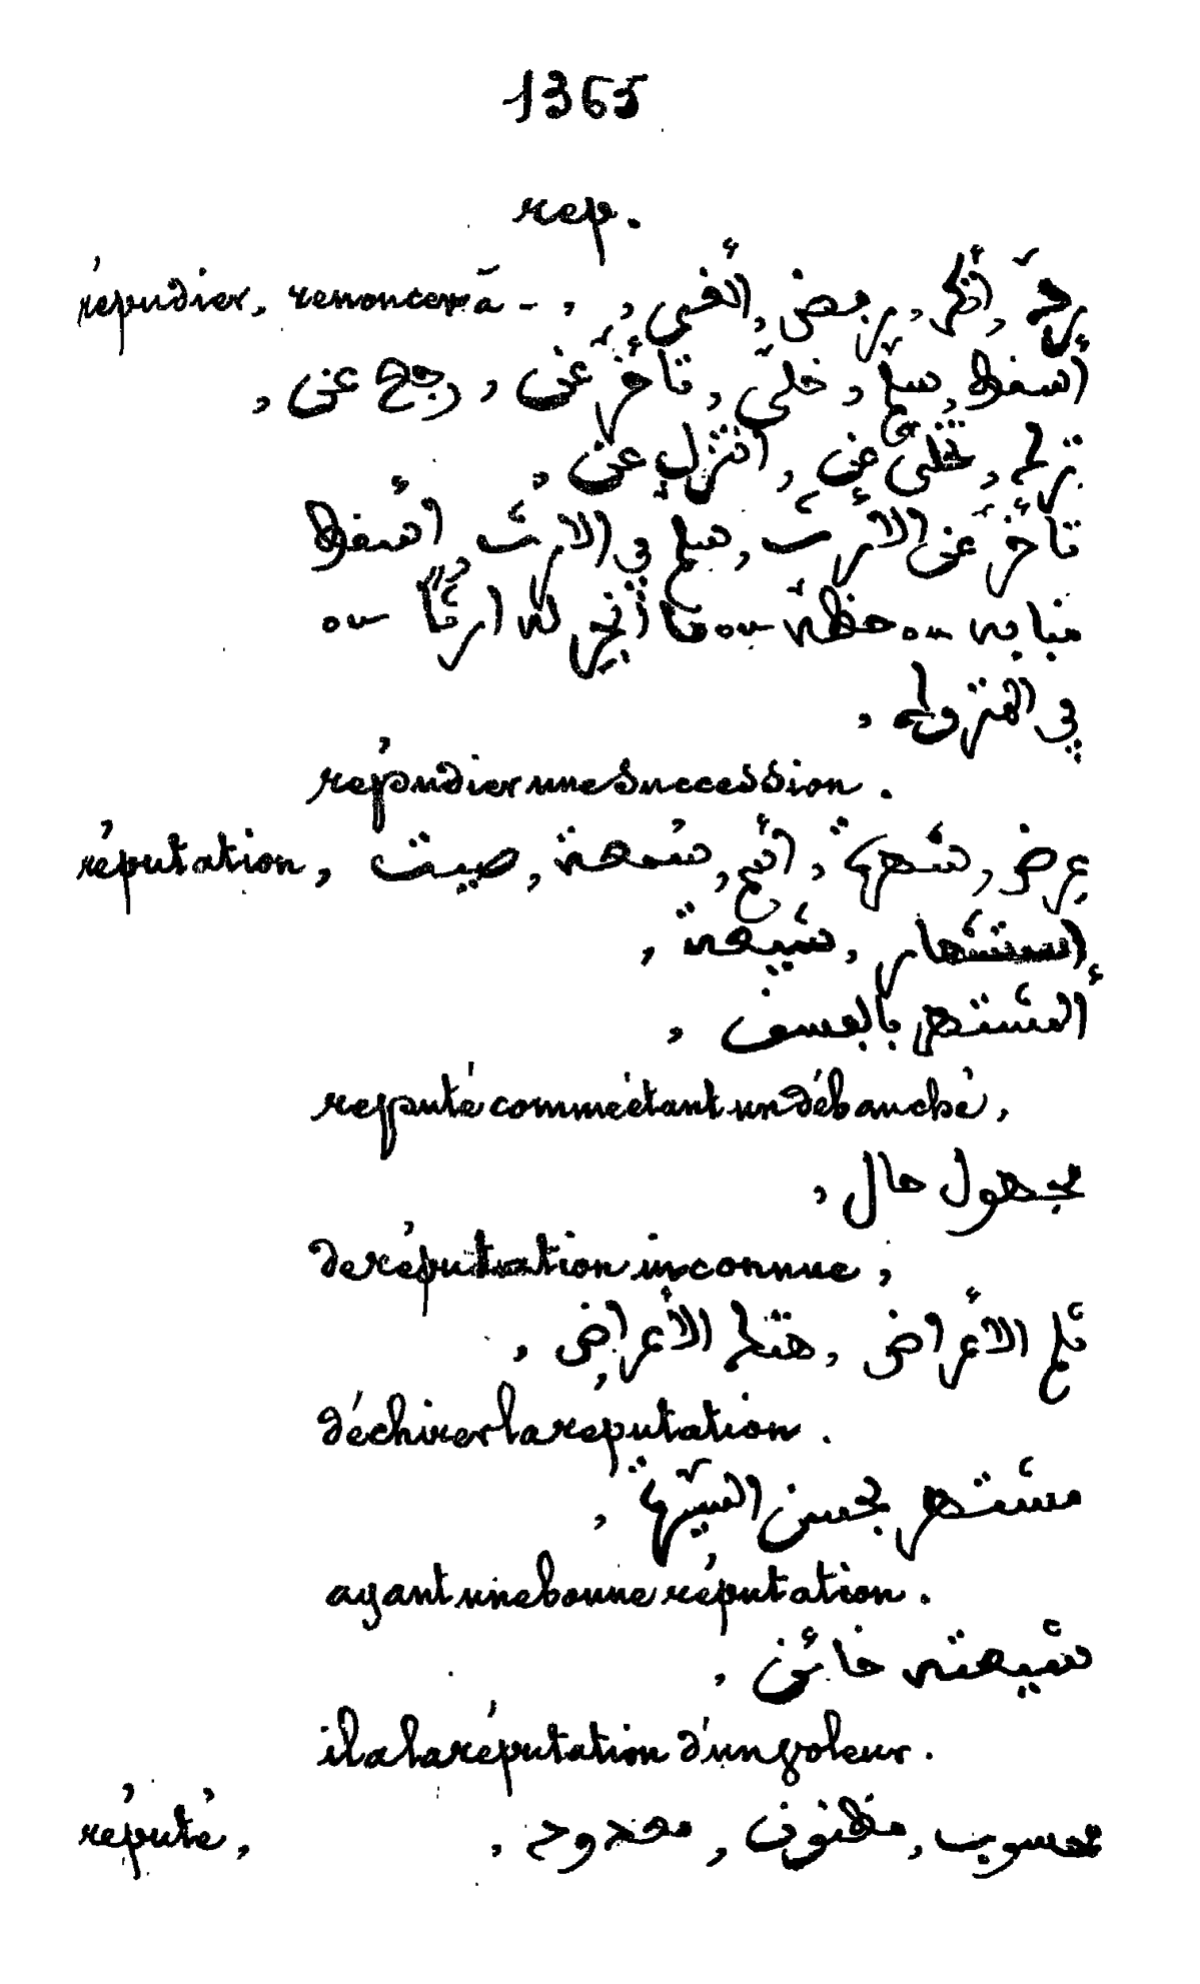 1365
rep.
répudier, renoncer à - , ردّ, أنكر, رفض, ألغى,
أسقط, سلّم, خلّى, تأخّر عن, رجع عن,
ترك, تخلّى عن, انزل عن,
تأخّر عن الأرث, سلم في الارث, أسقط
منابه ou حظّه ou ما أنجر له ارثًا ou
في المتروك,
répudier une succession.
réputation, عرض, شهرة, اسم, سمعة, صيت,
إستشهار, شيعة,
ألمشتهر بالفسق,
reputé comme étant un débauché,
مجهول حال,
de réputation inconnue,
ثلم الأعراض, هتك الأعراض,
déchirer la reputation.
مشتهر بحسن السيّرة,
ayant une bonne réputation.
شيعته خائن,
il a la réputation d'un voleur.
réputé, محسوب, مظنون, معدود,